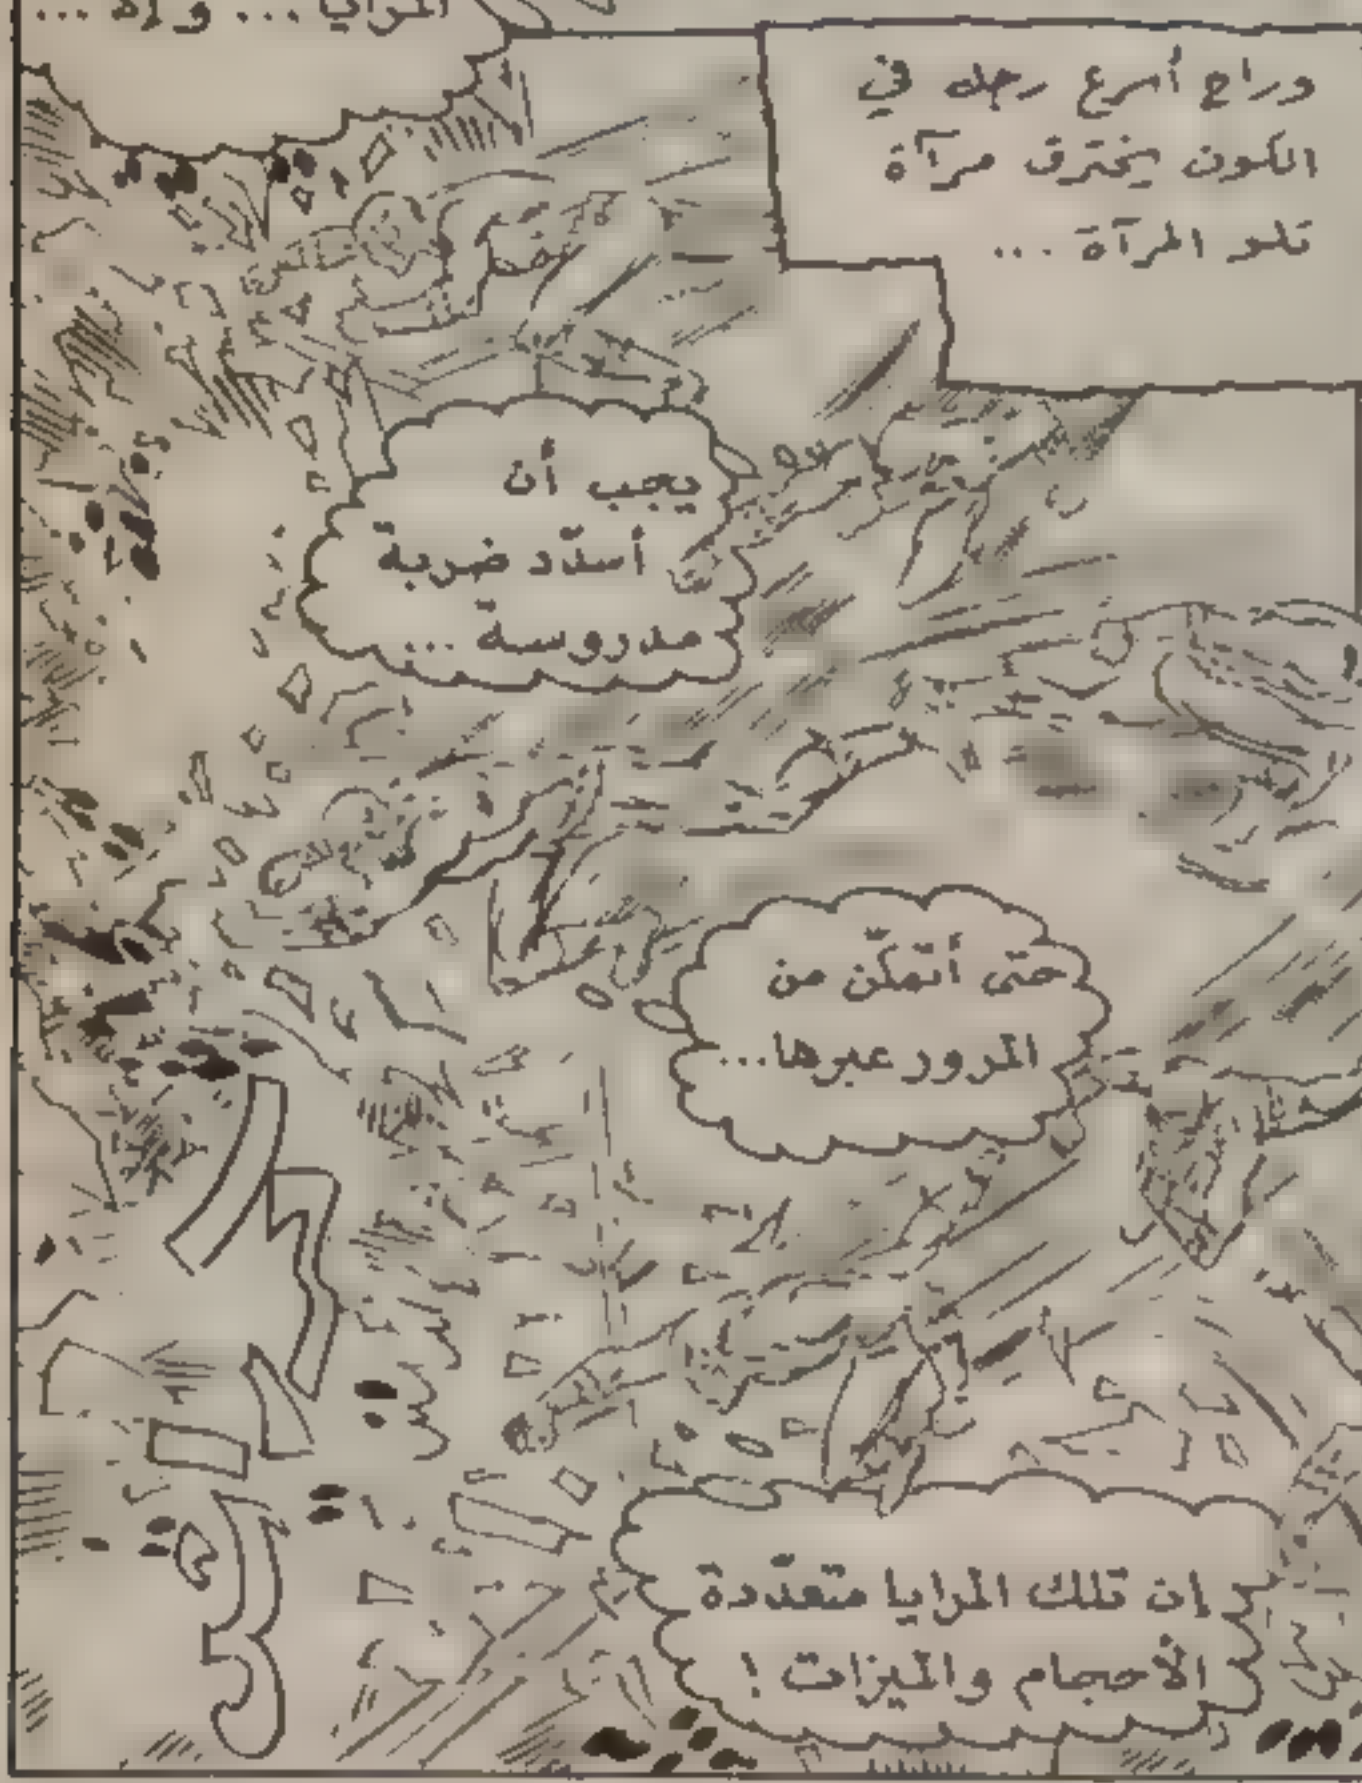 المرايا ... وإلا ...
وراح أسرع رجل في
الكون يخترق مرآة
تلو المرآة ...
يجب أن
أسدّد ضربة
مدروسة ...
حتى أتمكّن من
المرور عبرها...
ان تلك المرايا متعدّدة
الأحجام والميزات !